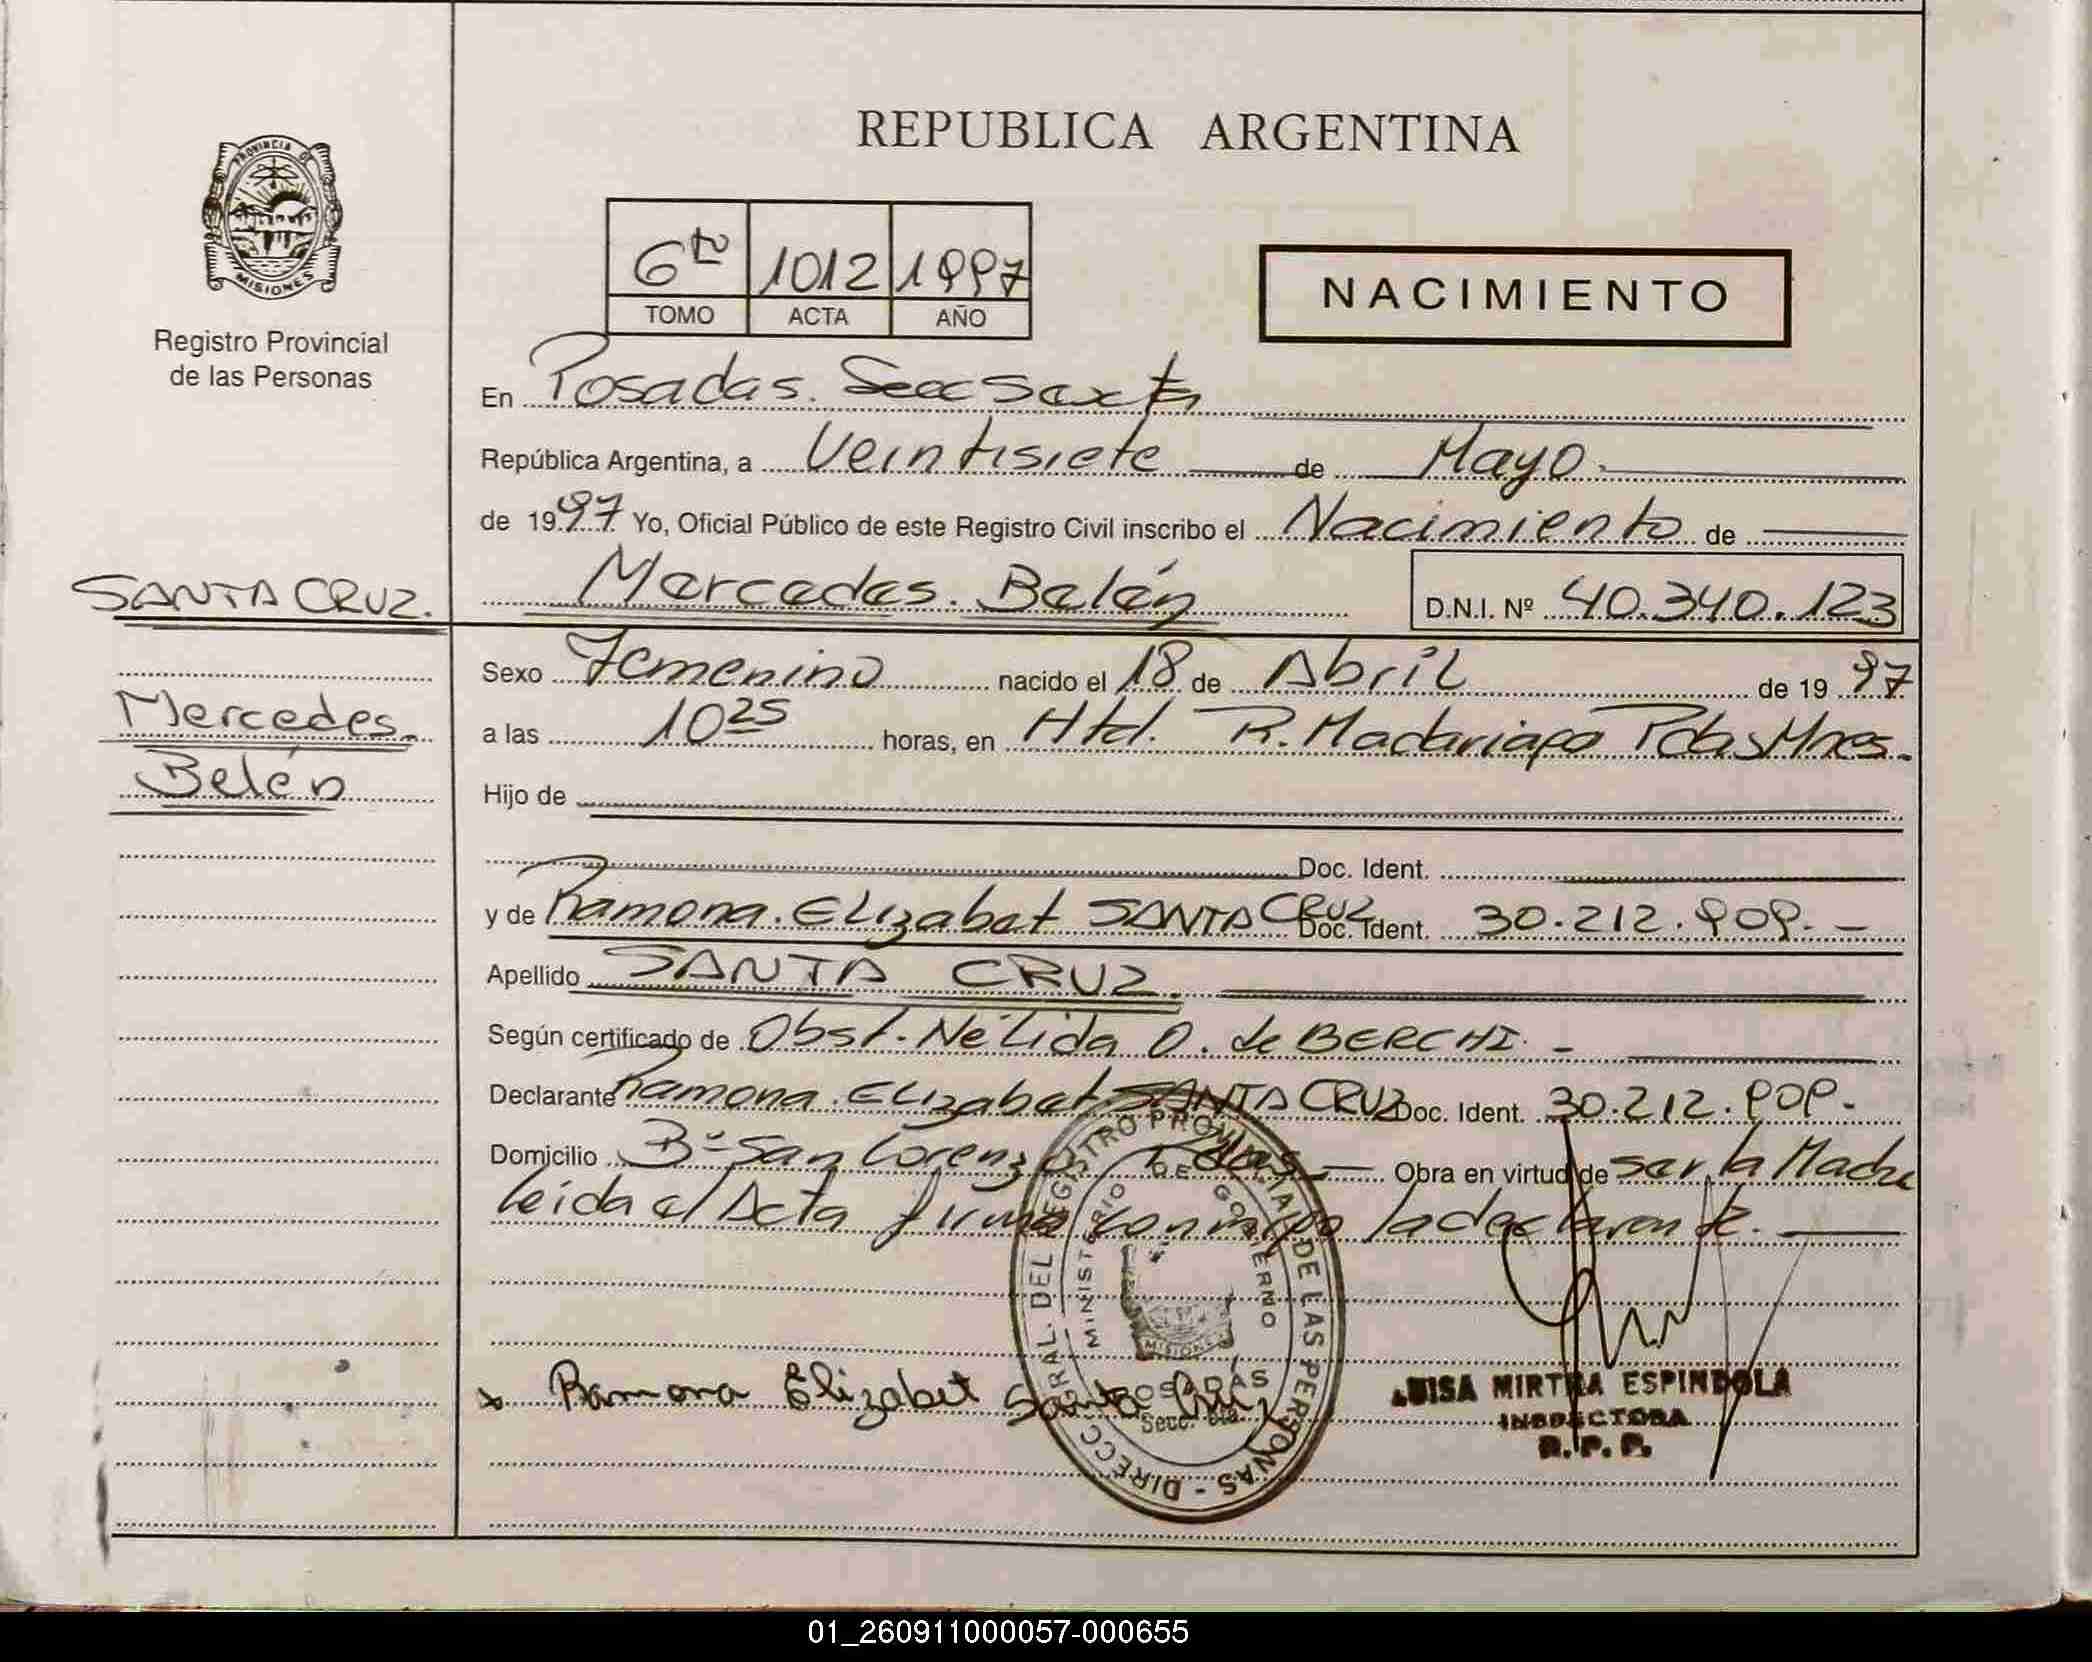 REPUBLICA ARGENTINA
PROVINCIA DE
MISIONES
Registro Provincial
de las Personas
6to 1012 1997
TOMO ACTA AÑO
NACIMIENTO
En Posadas. Secc Sexta
República Argentina, a Veintisiete de Mayo.
de 1997 Yo, Oficial Público de este Registro Civil inscribo el Nacimiento de
SANTA CRUZ.
Mercedes. Belén D.N.I. Nº 40.340.123
Sexo Femenino nacido el 18 de Abril de 1997
Mercedes.
a las 10 25 horas, en Htal. R. Madariaga Pdas Mnes.
Belén
Hijo de
Doc. Ident.
y de Ramona. Elizabet SANTA CRUZ Doc. Ident. 30.212.909.
Apellido SANTA CRUZ.
Según certificado de Obst. Nélida O. de BERCHI.
Declarante Ramona Elizabet SANTA CRUZ Doc. Ident. 30.212.909.
Domicilio Bº San Lorenzo Pdas Obra en virtud de ser la Madre
leida el Acta firma conmigo la declarante.
DIRECC. GRAL. DEL REGISTRO PROVINCIAL DE LAS PERSONAS -
MINISTERIO DE GOBIERNO
MISIONES
POSADAS
Secc. 6ta.
x Ramona Elizabet Santa Cruz
LUISA MIRTHA ESPINDOLA
INSPECTORA
R. P. P.
01_260911000057-000655